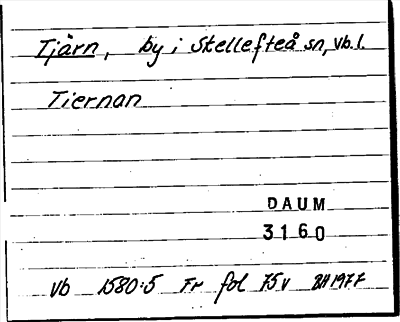 Tjärn, by i Skellefteå sn, Vb. l.
Tiernan
DAUM
3160
Vb 1580:5 Fr fol 75v BH 1977